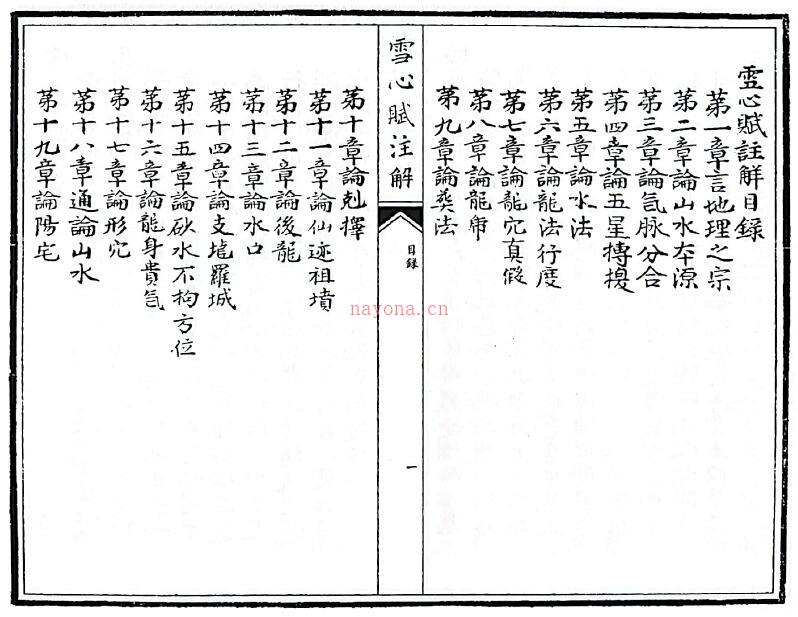 雪心賦註解目錄
第一章言地理之宗
第二章論山水本源
第三章論氣脉分合
第四章論五星摶換
第五章論水法
第六章論龍法行度
第七章論龍穴真假
第八章論龍虎
第九章論葬法
雪心賦注解
目錄
一
第十章論剋擇
第十一章論仙迹祖墳
第十二章論後龍
第十三章論水口
第十四章論支壠羅城
第十五章論砂水不拘方位
第十六章論龍身貴氣
第十七章論形穴
第十八章通論山水
第十九章論陽宅
nayona.cn